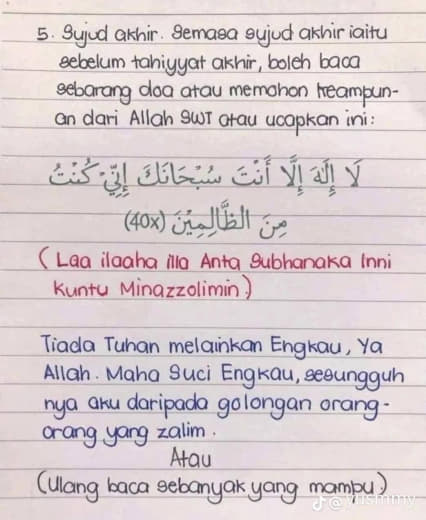 5. Sujud akhir. Semasa sujud akhir iaitu
sebelum tahiyyat akhir, boleh baca
sebarang doa atau memohon keampun-
an dari Allah SWT atau ucapkan ini:
لَا إِلَهَ إِلَّا أَنْتَ سُبْحَانَكَ إِنِّي كُنْتُ
مِنَ الظَّالِمِيْنَ (40x)
(Laa ilaaha illa Anta Subhanaka Inni
Kuntu Minazzolimin)
Tiada Tuhan melainkan Engkau, Ya
Allah. Maha Suci Engkau, sesungguh
nya aku daripada golongan orang-
orang yang zalim.
Atau
(Ulang baca sebanyak yang mampu)